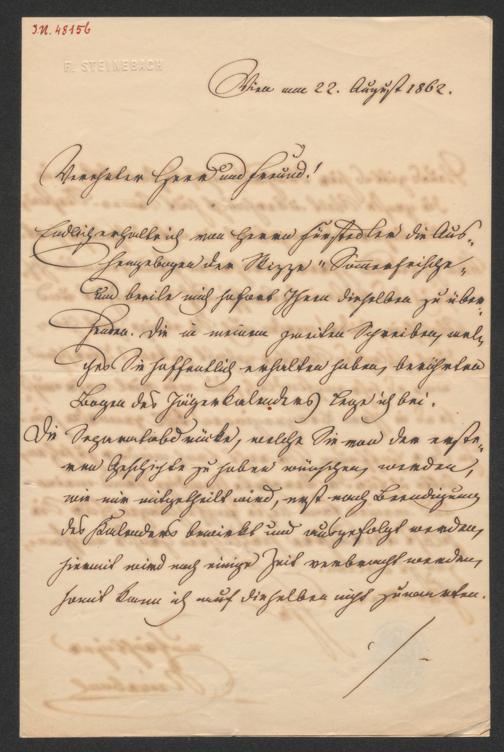 J.N. 48156
F. STEINEBACH
Wien am 22. August 1862.
Verehrter Herr und Freund!
Endlich erhalte ich von Herrn Fürstedler die Aus-
hengebogen der Skizze "Sommerfrische"
und beeile mich sofort Ihnen dieselben zu über-
senden. Die in meinem zweiten Schreiben, wel-
ches Sie hoffentlich erhalten haben, berührten
Bogen des Jägerkalenders lege ich bei.
Die Separatabdrücke, welche Sie von der erste-
ren Geschichte zu haben wünschen, werden,
wie mir mitgetheilt wird, erst nach Beendigung
des Kalenders bewirkt und ausgefolgt werden,
hiermit wird noch einige Zeit verbracht werden,
somit kann ich auf dieselben nicht zuwarten.
./.